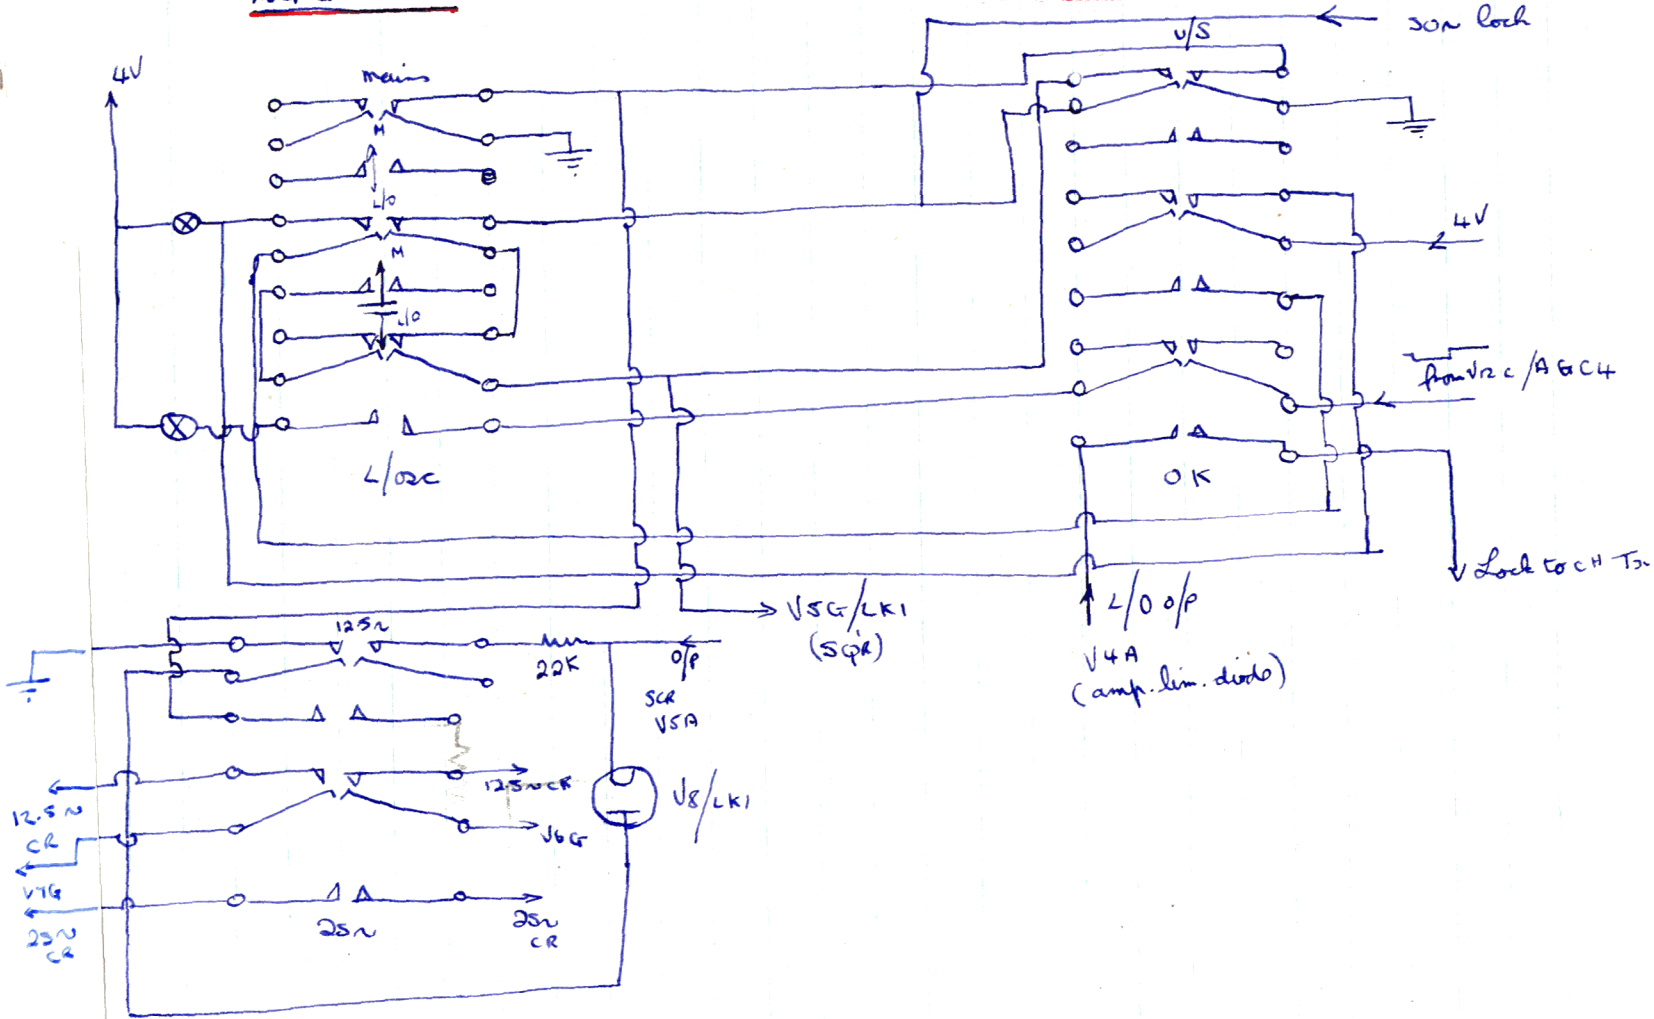 50~ lock
U/S
4V
mains
M
L/O
4V
M
L/O
from V12C/AGC4
L/OSC
OK
Lock to CH-Tx.
V5G/LK1
(SQR)
L/O O/P
V4A
(amp. lim. diode)
12.5~
22K
O/P
SCR
V5A
12.5~ CR
V8/LK1
12.5~
CR
V6G
V7G
25~
25~
CR
25~
CR